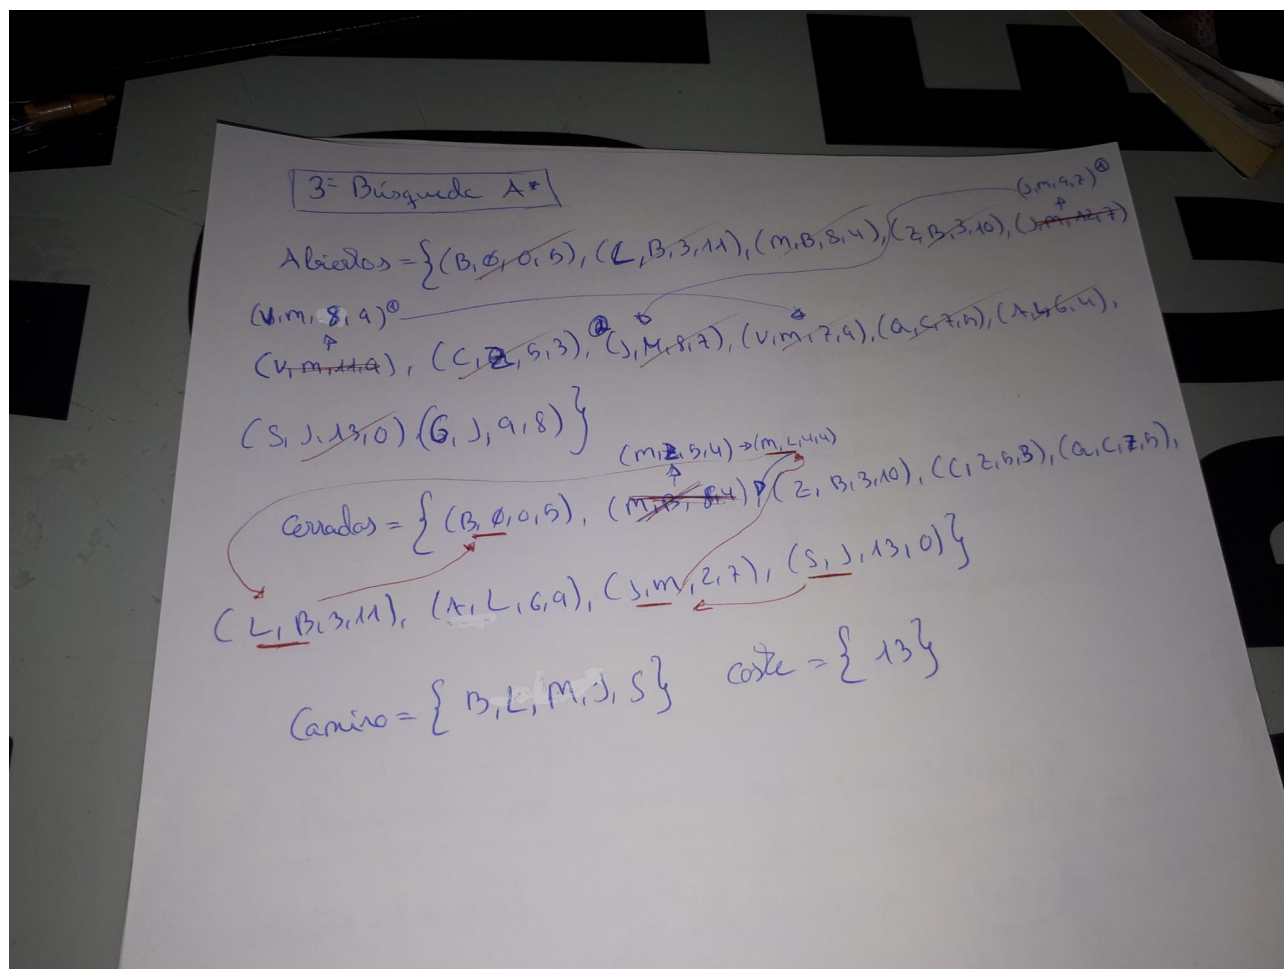 3= Búsqueda A*
(J,M,9,7)①
Abiertos = {(B,∅,0,5), (L,B,3,11), (M,B,8,4), (Z,B,3,10), (J,M,12,7)
(V,M,8,9)①
(V,M,11,9), (C,Z,5,3), ②(J,M,8,7), (V,M,7,9), (Q,C,7,5), (A,L,6,4),
(S,J,13,0) (G,J,9,8)}
(M,Z,5,4) → (M,L,4,4)
Cerrados = {(B,∅,0,5), (M,B,8,4) (Z,B,3,10), (C,Z,5,3), (Q,C,7,5),
(L,B,3,11), (A,L,6,9), (J,M,2,7), (S,J,13,0)}
Camino = {B,L,M,J,S} coste = {13}